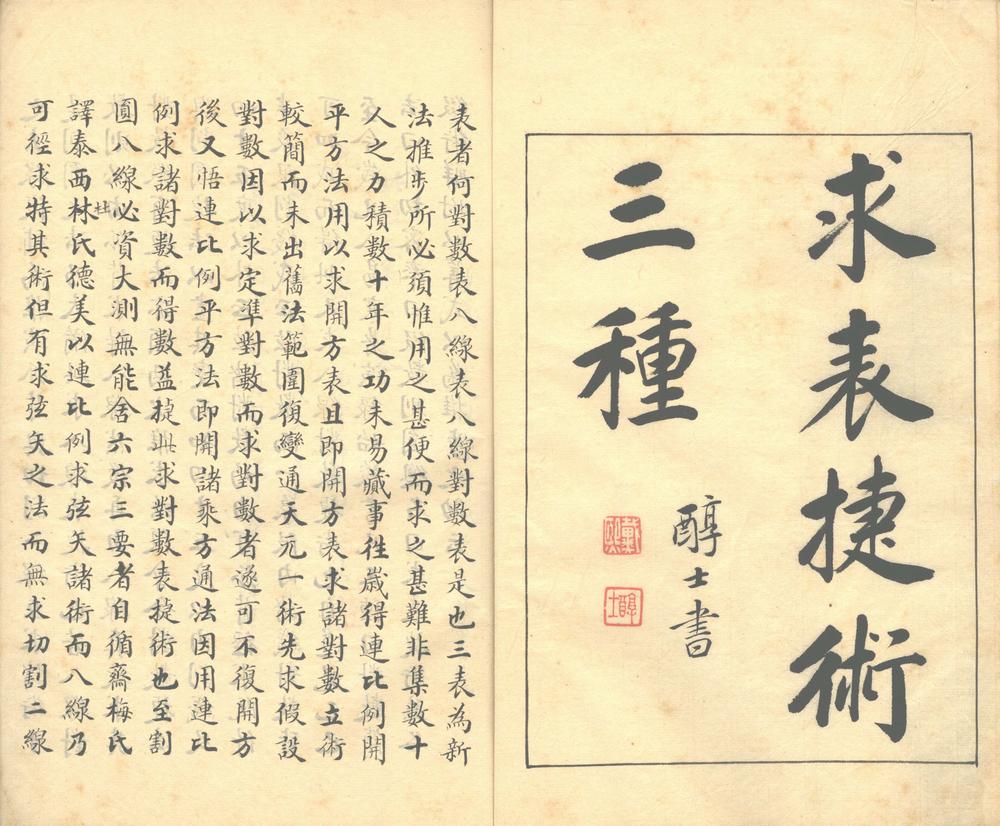 求表捷術
三種
醇士書
戴熙
醇士
表者何對數表八線表八線對數表是也三表為新
法推步所必須惟用之甚便而求之甚難非集數十
人之力積數十年之功未易蕆事徃歲得連比例開
平方法用以求開方表且即開方表求諸對數立術
較簡而未出舊法範圍復變通天元一術先求假設
對數因以求定準對數而求對數者遂可不復開方
後又悟連比例平方法即開諸乘方通法因用連比
例求諸對數而得數益捷此求對數表捷術也至割
圓八線必資大測無能舍六宗三要者自循齋梅氏
譯泰西林杜氏德美以連比例求弦矢諸術而八線乃
可徑求特其術但有求弦矢之法而無求切割二線